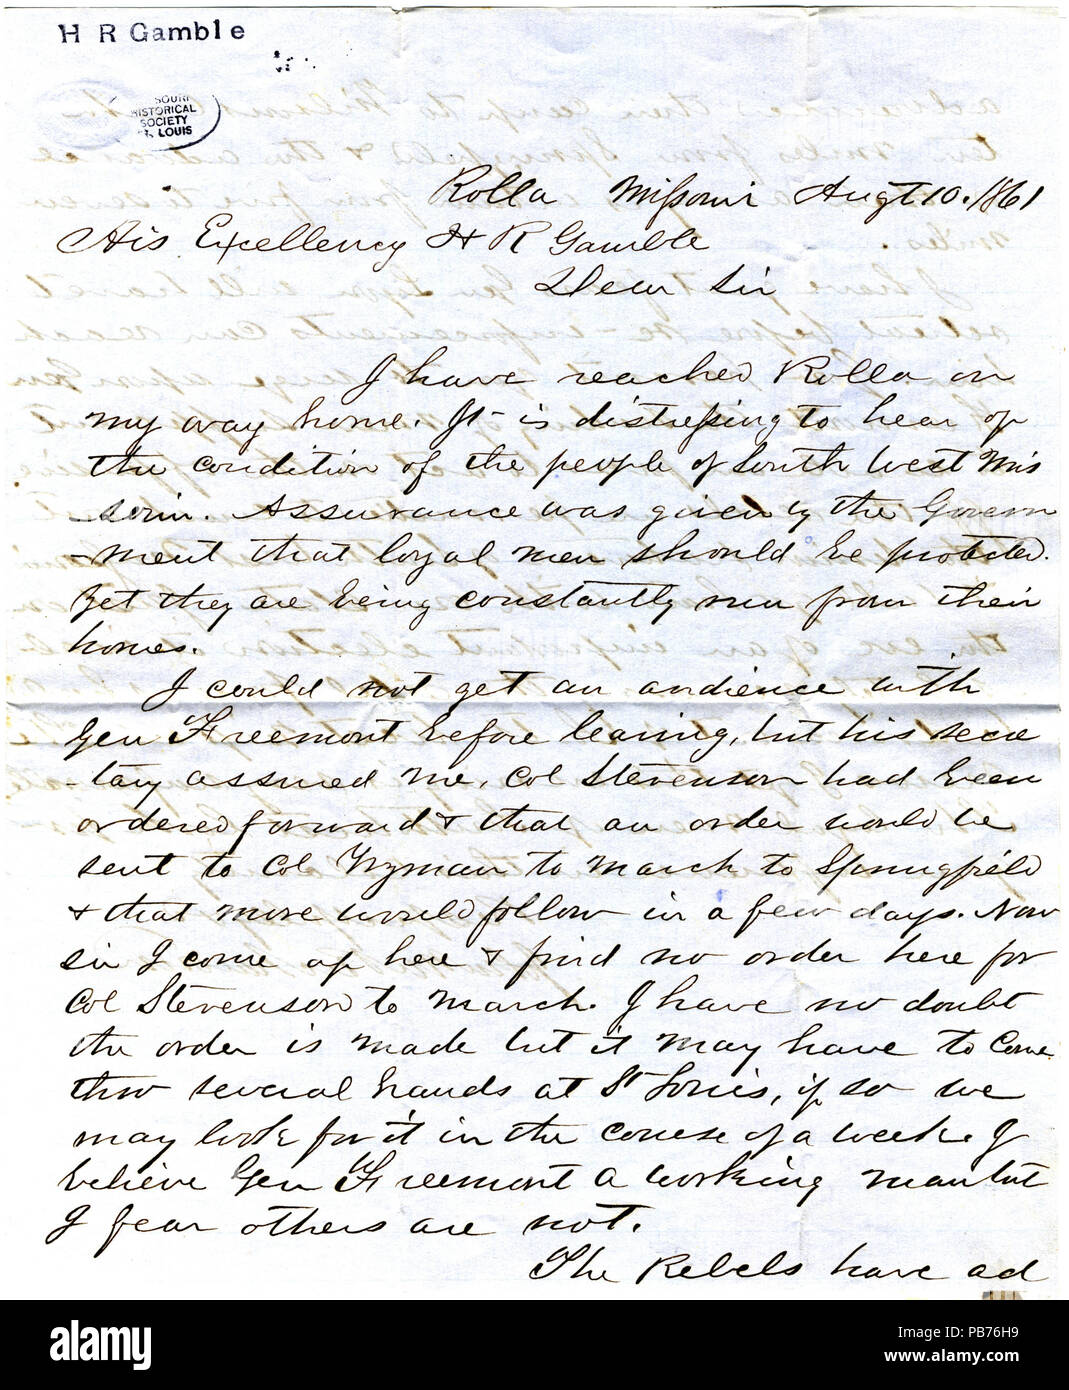 H R Gamble
SOURI
HISTORICAL
SOCIETY
T. LOUIS
Rolla Missouri Augt 10. 1861
His Excellency H R Gamble
Dear Sir
I have reached Rolla on
my way home. It is distressing to hear of
the condition of the people of South West Mis
-souri. Assurance was given by the Govern
-ment that loyal men should be protected.
Yet they are being constantly run from their
homes.
I could not get an audience with
Gen Freemont before leaving, but his secre
-tary assured me, Col Stevenson had been
ordered forward & that an order would be
sent to Col Wyman to march to Springfield
& that more would follow in a few days. Now
sir I come up here & find no order here for
Col Stevenson to march. I have no doubt
the order is made but it may have to come
thro several hands at St Louis, if so we
may look for it in the course of a week. I
believe Gen Freemont a working man but
I fear others are not.
The Rebels have ad
alamy
Image ID: PB76H9
www.alamy.com